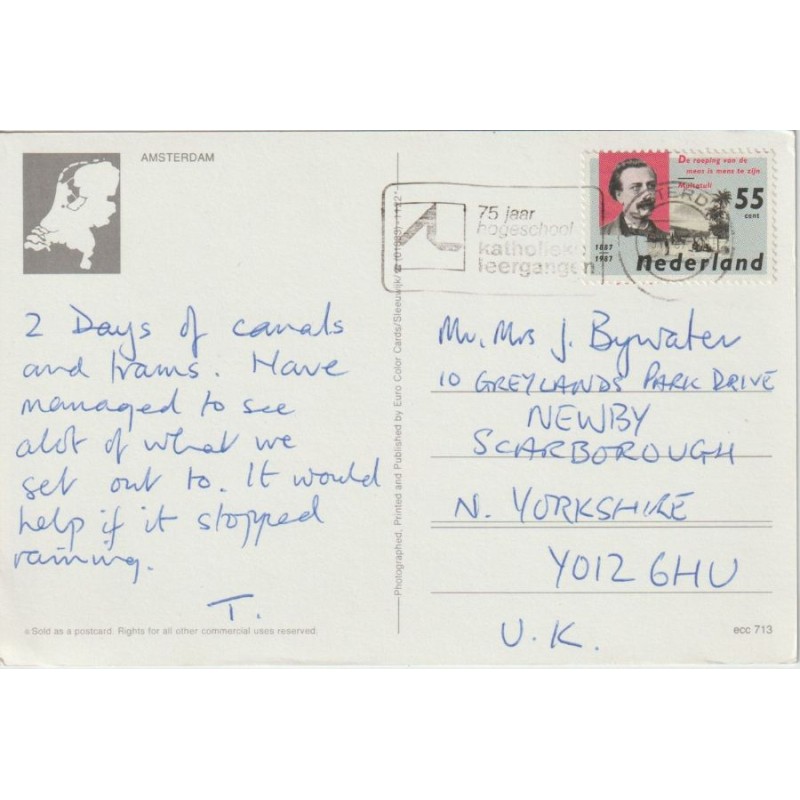 AMSTERDAM
2 Days of canals
and trams. Have
managed to see
alot of what we
set out to. It would
help if it stopped
raining.
T.
© Sold as a postcard. Rights for all other commercial uses reserved.
Photographed, Printed and Published by Euro Color Cards/Sleeuwijk/
75 jaar
hogeschool
katholieke
leergangen
De roeping van de
mens is mens te zijn
Multatuli
55
cent
1887
1987
nederland
Mr. Mrs J. Bywater
10 GREYLANDS PARK DRIVE
NEWBY
SCARBOROUGH
N. YORKSHIRE
YO12 6HU
U.K.
ecc 713